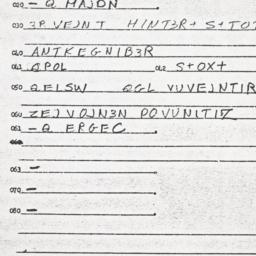 020 – Q MAJDN
030 3P VEJNT HINT3R+ S+TOT
040 ANTKEGNIB3R
041 QPOL 042 S+OX+
050 QELSW QGL VUVEJNTIR
060 ZEJVOJN3N POVUNITIZ
061 – Q ERGEC
063 –
070 –
080 –